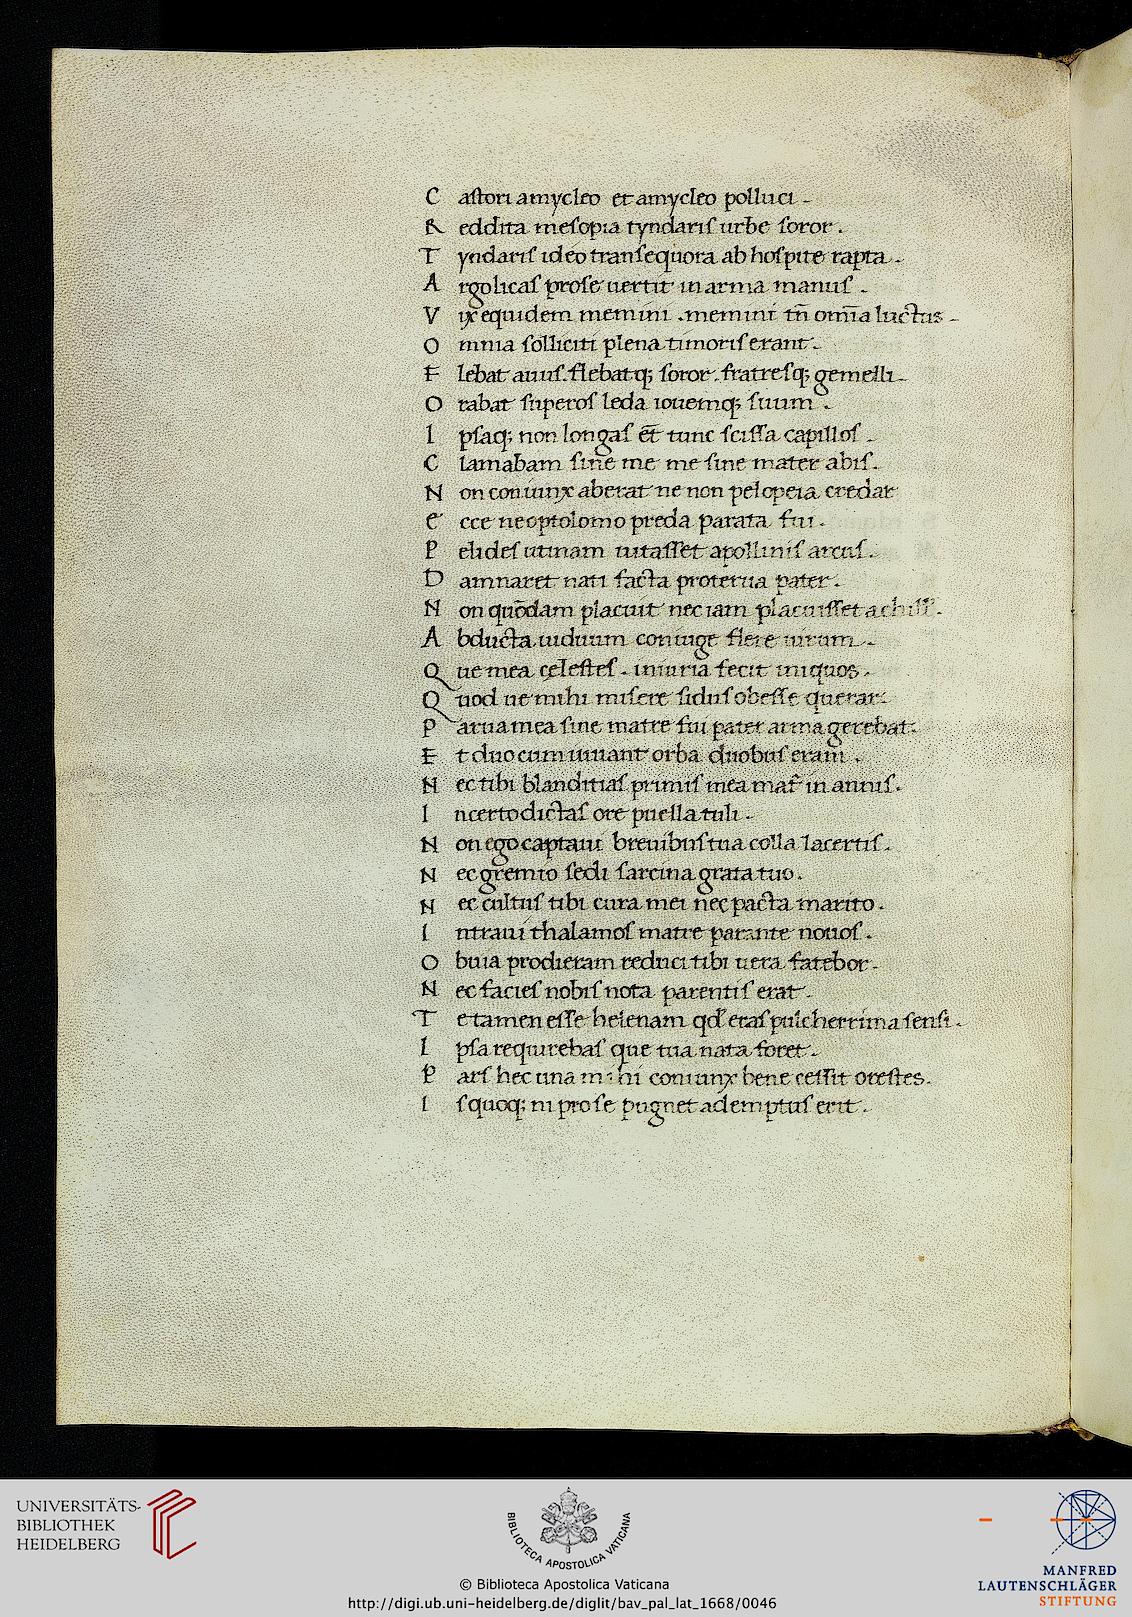 C astori amycleo et amycleo polluci .
R eddita mesopia tyndaris urbe soror .
T yndaris ideo trans equora ab hospite rapta .
A rgolicas pro se uertit in arma manus .
V ix equidem memini . memini tn̄ om̄ia luctus .
O mnia solliciti plena timoris erant .
F lebat auus . flebatq; soror . fratresq; gemelli .
O rabat superos leda iouemq; suum .
I psaq; non longas et̄ tunc scissa capillos .
C lamabam sine me me sine mater abis .
N on coniunx aberat ne non pelopeia credar
E cce neoptolomo preda parata fui .
P elides utinam uitasset apollinis arcus .
D amnaret nati facta proterua pater .
N on quōdam placuit nec iam placuisset achilli .
A bducta uiduum coniuge flere uirum .
Q ue mea cęlestes . iniuria fecit iniquos .
Q uod ue mihi misere sidus obesse querar .
P arua mea sine matre fui pater arma gerebat .
E t duo cum uiuant orba duobus eram .
N ec tibi blanditias primis mea mat̄ in annis .
I ncerto dictas ore puella tuli .
N on ego captaui breuibus tua colla lacertis .
N ec gremio sedi sarcina grata tuo .
N ec cultus tibi cura mei nec pacta marito .
I ntraui thalamos matre parante nouos .
O buia prodieram reduci tibi uera fatebor .
N ec facies nobis nota parentis erat .
T e tamen esse helenam qd̛ eras pulcherrima sensi .
I psa requirebas que tua nata foret .
P ars hec una mihi coniunx bene cessit orestes .
I s quoq; ni pro se pugnet ademptus erit .
UNIVERSITÄTS-
BIBLIOTHEK
HEIDELBERG
BIBLIOTECA APOSTOLICA VATICANA
MANFRED
LAUTENSCHLÄGER
STIFTUNG
© Biblioteca Apostolica Vaticana
http://digi.ub.uni-heidelberg.de/diglit/bav_pal_lat_1668/0046